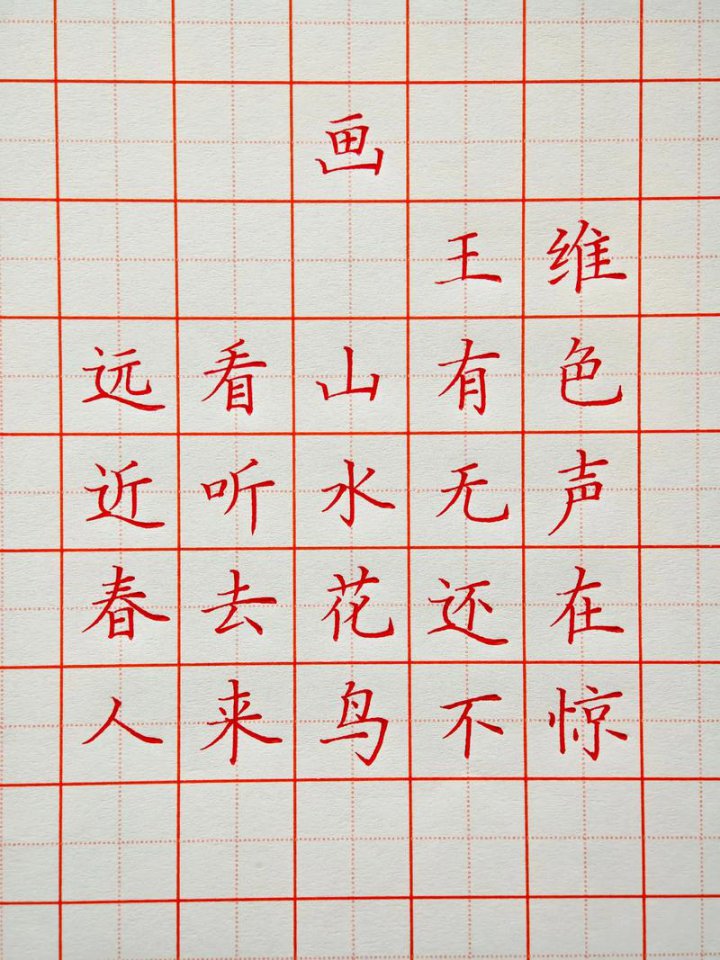 画
王维
远看山有色
近听水无声
春去花还在
人来鸟不惊